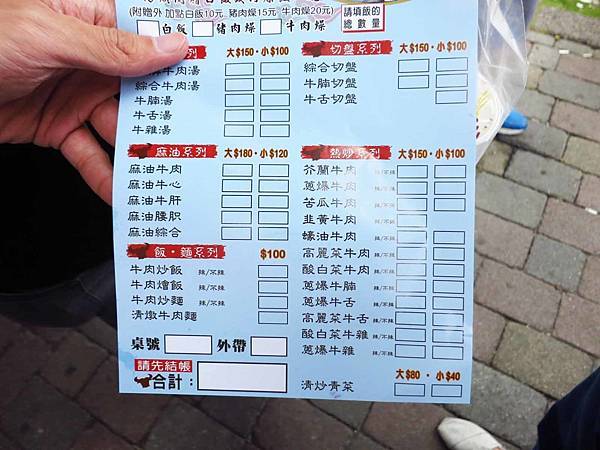 (附贈外 加點白飯10元 豬肉燥15元 牛肉燥20元)
白飯 豬肉燥 牛肉燥
請填飯的
總數量
大$150·小$100
牛肉湯
綜合牛肉湯
牛腩湯
牛舌湯
牛雜湯
切盤系列 大$150·小$100
綜合切盤
牛腩切盤
牛舌切盤
麻油系列 大$180·小$120
麻油牛肉
麻油牛心
麻油牛肝
麻油腰只
麻油綜合
熱炒系列 大$150·小$100
芥蘭牛肉 辣/不辣
蔥爆牛肉 辣/不辣
苦瓜牛肉 辣/不辣
韭黃牛肉
蠔油牛肉 辣/不辣
高麗菜牛肉 辣/不辣
酸白菜牛肉 辣/不辣
蔥爆牛腩 辣/不辣
蔥爆牛舌 辣/不辣
高麗菜牛舌 辣/不辣
酸白菜牛雜 辣/不辣
蔥爆牛雜 辣/不辣
飯·麵系列 $100
牛肉炒飯 辣/不辣
牛肉燴飯 辣/不辣
牛肉炒麵 辣/不辣
清燉牛肉麵
桌號 外帶
請先結帳
合計:
大$80·小$40
清炒青菜